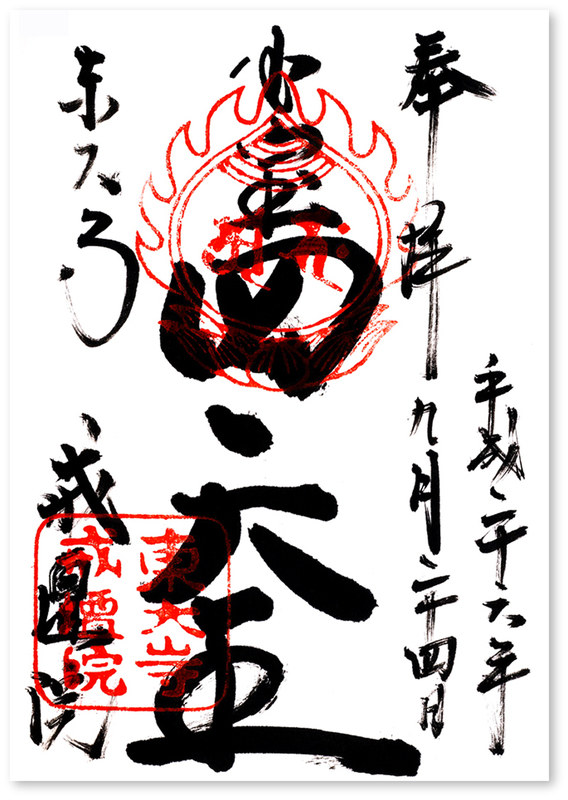 平成二十六年
奉拝 九月二十四日
四天王
東大寺 戒壇院
東大寺
戒壇院